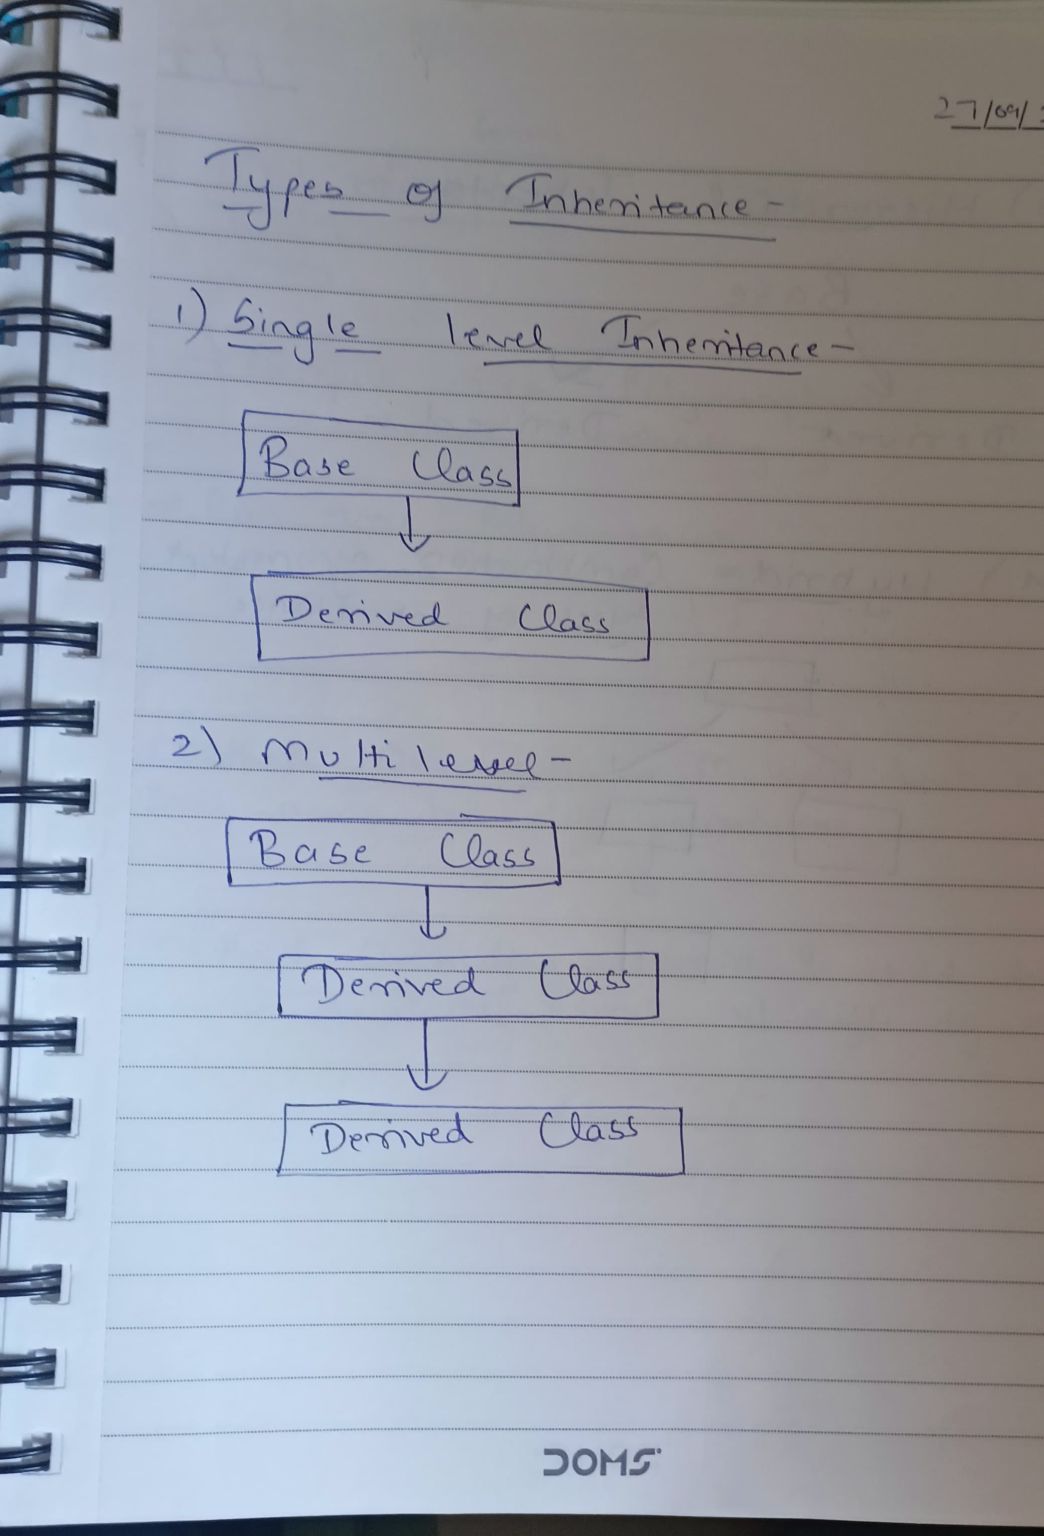 27/09/
Types of Inheritance -
1) Single level Inheritance -
Base Class
Derived Class
2) Multi level -
Base Class
Derived Class
Derived Class
DOMS